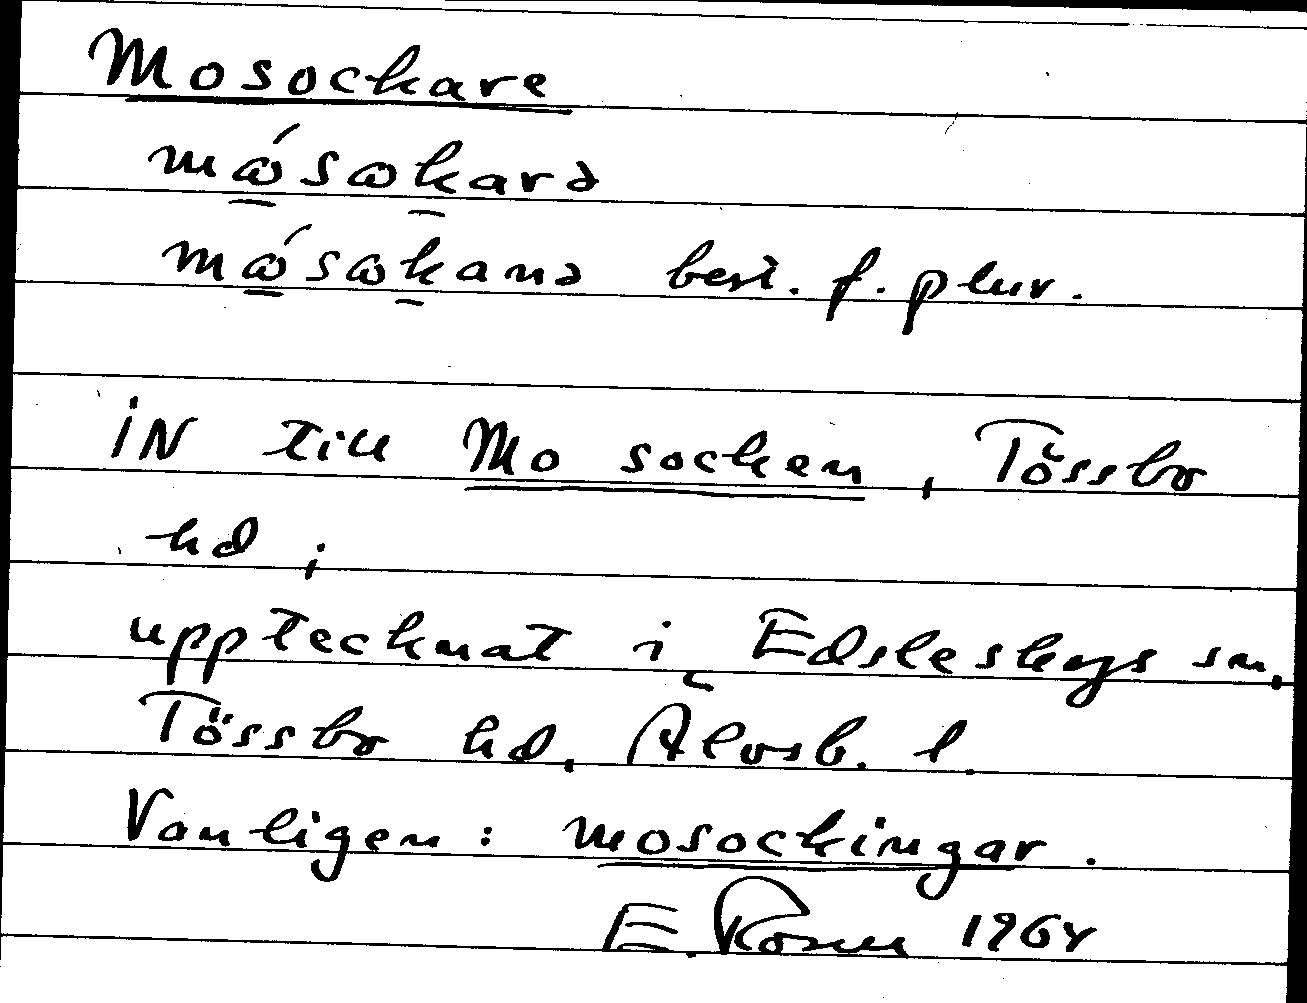 Mosockare
mǿsωkarə
mǿsωkanə best. f. plur.
iN till Mo socken, Tössbo
hd;
upptecknat i Edsleskogs sn,
Tössbo hd, Älvsb. l.
Vanligen: mosockingar.
E. Rosén